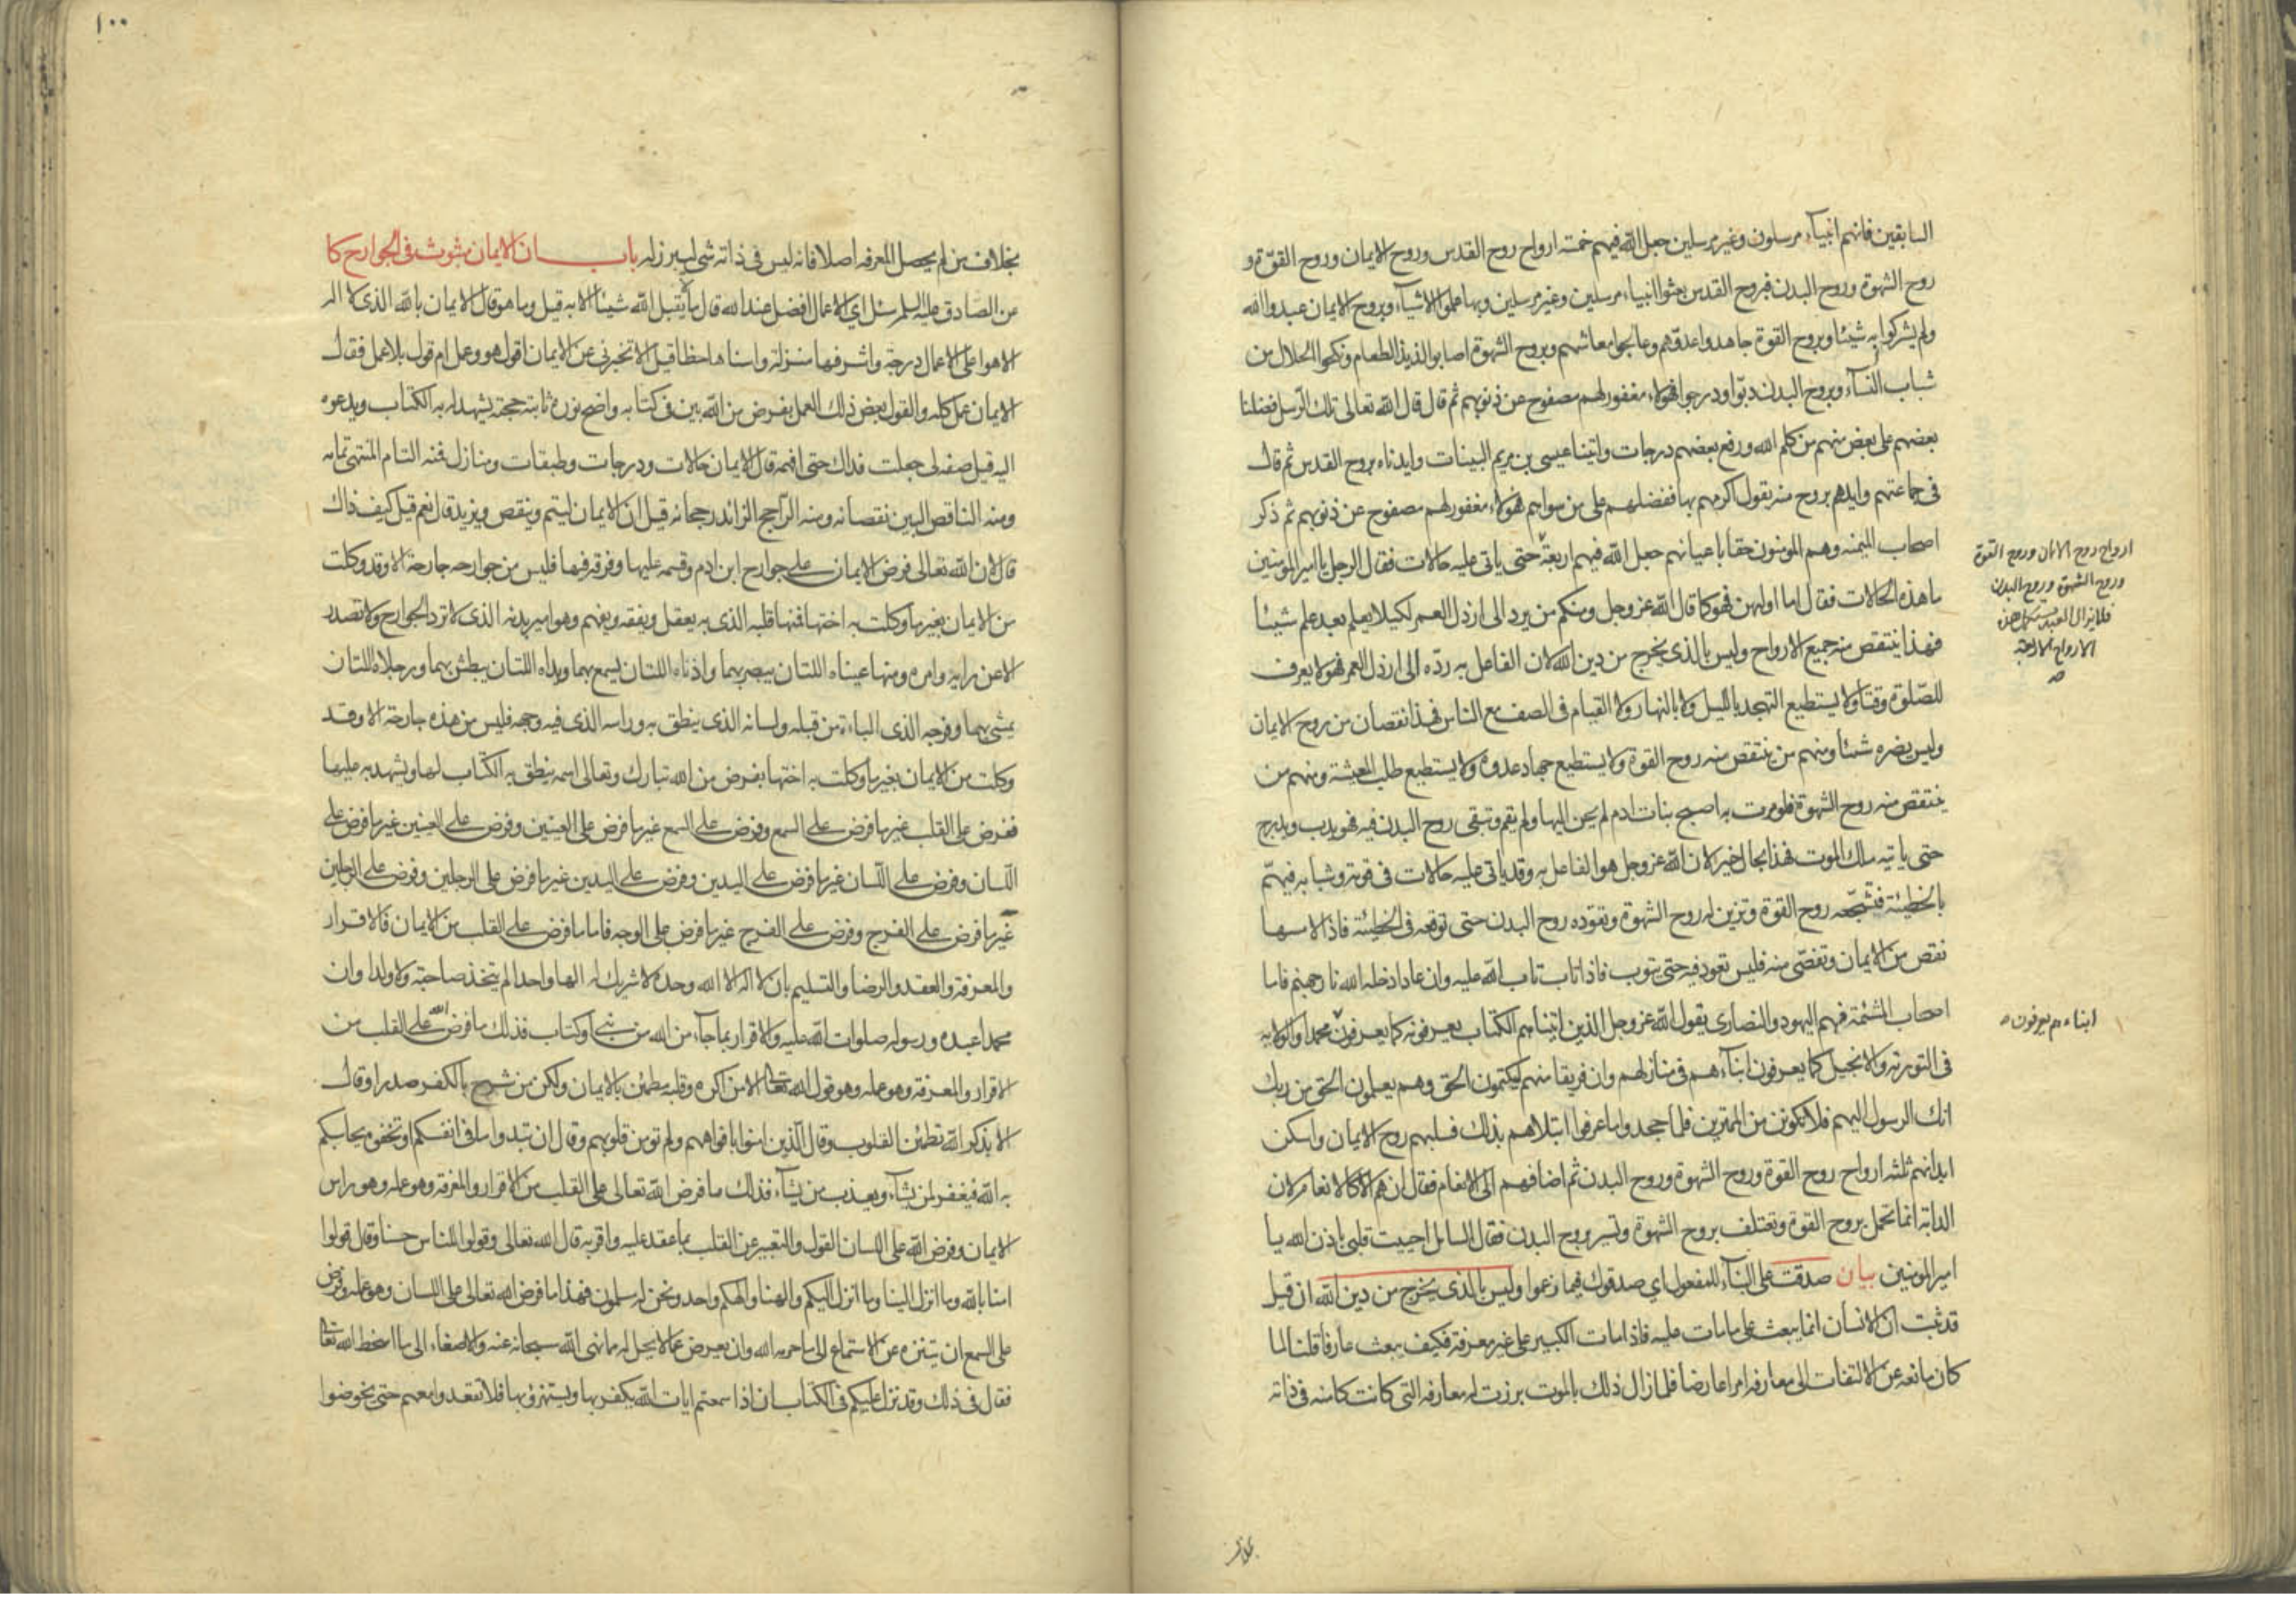 السابقين فانهم انبيآء مرسلون وغير مرسلين جعل الله فيهم خمسة ارواح روح القدس وروح الايمان وروح القوّة و
روح الشهوة وروح البدن فبروح القدس بعثوا انبياء مرسلين وغير مرسلين وبها علموا الاشيآء وبروح الايمان عبدوا الله
ولم يشركوا به شيئا وبروح القوة جاهدوا عدوّهم وعالجوا معاشهم وبروح الشهوة اصابوا لذيذ الطعام ونكحوا الحلال من
شباب النسآء وبروح البدن دبّوا ودرجوا فهؤلاء مغفور لهم مصفوح عن ذنوبهم ثم قال قال الله تعالى تلك الرّسل فضلنا
بعضهم على بعض منهم من كلم الله ورفع بعضهم درجات واتينا عيسى بن مريم البينات وايدناه بروح القدس ثم قال
فى جماعتهم وايدهم بروح منه يقول اكرمهم بها ففضلهم على من سواهم فهؤلاء مغفور لهم مصفوح عن ذنوبهم ثم ذكر
اصحاب الميمنه وهم المومنون حقا باعيانهم جعل الله فيهم اربعة حتى ياتى عليه حالات فقال الرجل يا امير المومنين
ما هذه الحالات فقال اما اولهن فهو كما قال الله عز وجل ومنكم من يرد الى ارذل العمر لكيلا يعلم بعد علم شيئا
فهذا ينتقص منه جميع الارواح وليس بالذى يخرج من دين الله لان الفاعل به ردّه الى ارذل العمر فهو لا يعرف
للصّلوة وقتا ولا يستطيع التهجد بالليل ولا بالنهار ولا القيام فى الصف مع الناس فهذا نقصان من روح الايمان
وليس يضره شيئا ومنهم من ينتقص منه روح القوة ولا يستطيع جهاد عدوه ولا يستطيع طلب المعيشة ومنهم من
ينتقص منه روح الشهوة فلو مرت به اصبح بنات ادم لم يحن اليها ولم يقم وتبقى روح البدن فيه فهو يدب ويدرج
حتى ياتيه ملك الموت فهذا بحال خير لان الله عز وجل هو الفاعل به وقد ياتى عليه حالات فى قوته وشبابه فيهمّ
بالخطيئة فتشجّعه روح القوة وتزين له روح الشهوة وتقوده روح البدن حتى توقعه فى الخطيئة فاذا لامسها
نقص من الايمان وتفصّى منه فليس تعود فيه حتى يتوب فاذا تاب تاب الله عليه وان عاد ادخله الله نار جهنم فاما
اصحاب المشئمة فهم اليهود والنصارى يقول الله عز وجل الذين اتيناهم الكتاب يعرفونه كما يعرفون محمدا والولاية
فى التورية والانجيل كما يعرفون ابنآءهم فى منازلهم وان فريقا منهم ليكتمون الحق وهم يعلمون الحق من ربك
انك الرسول اليهم فلا تكونن من الممترين فلما جحدوا ما عرفوا ابتلاهم بذلك فسلبهم روح الايمان واسكن
ابدانهم ثلثه ارواح روح القوة وروح الشهوة وروح البدن ثم اضافهم الى الانعام فقال ان هم الا كالانعام لان
الدابة انما تحمل بروح القوة وتعتلف بروح الشهوة وتسير بروح البدن فقال السايل احييت قلبى باذن الله يا
امير المومنين بيان صدقت على البنآء للمفعول اي صدقوك فيما زعموا وليس بالذى يخرج من دين الله ان قيل
قد ثبت ان الانسان انما يبعث على ما مات عليه فاذا مات الكبير على غير معرفة فكيف يبعث عارفا قلنا لما
كان مانعه عن الالتفات الى معارفه امرا عارضا فلما زال ذلك بالموت برزت له معارفه التى كانت كامنه فى ذاته
ارواح روح الايمان وروح القوة
وروح الشهوة وروح البدن
فلا يزال العبد يستكمل هذه
الارواح الاربعة
صح
ابناءهم يعرفون
١٠٠
بخلاف من لم يحصل المعرفه اصلا فانه ليس فى ذاته شى ليبرز له باب ان الايمان مبثوث فى الجوارح كا
عن الصادق عليه السلم سئل اي الاعمال افضل عند الله قال ما لا يقبل الله شيئا الا به قيل وما هو قال الايمان بالله الذى لا اله
الا هو اعلى الاعمال درجة واشرفها منزلة واسناها حظا قيل الا تخبرنى عن الايمان اقول هو وعمل ام قول بلا عمل فقال
الايمان عمل كله والقول بعض ذلك العمل بفرض من الله بين فى كتابه واضح نوره ثابتة حجته يشهد له به الكتاب ويدعوه
اليه قيل صفه لى جعلت فداك حتى افهمه قال الايمان حالات ودرجات وطبقات ومنازل فمنه التام المنتهى تمامه
ومنه الناقص البين نقصانه ومنه الرّاجح الزائد رجحانه قيل ان الايمان ليتم وينقص ويزيد قال نعم قيل كيف ذاك
قال لان الله تعالى فرض الايمان على جوارح ابن ادم وقسمه عليها وفرقه فيها فليس من جوارحه جارحة الا وقد وكلت
من الايمان بغير ما وكلت به اختها فمنها قلبه الذى به يعقل ويفقه ويفهم وهو امير بدنه الذى لا ترد الجوارح ولا تصدر
الا عن رايه وامره ومنها عيناه اللتان يبصر بهما واذناه اللتان يسمع بهما ويداه اللتان يبطش بهما ورجلاه اللتان
يمشى بهما وفرجه الذى الباءة من قبله ولسانه الذى ينطق به وراسه الذى فيه وجهه فليس من هذه جارحة الا وقد
وكلت من الايمان بغير ما وكلت به اختها بفرض من الله تبارك وتعالى اسمه ينطق به الكتاب لها ويشهد به عليها
ففرض على القلب غير ما فرض على السمع وفرض على السمع غير ما فرض على العينين وفرض على العينين غير ما فرض على
اللسان وفرض على اللّسان غير ما فرض على اليدين وفرض على اليدين غير ما فرض على الرجلين وفرض على الرجلين
غير ما فرض على الفرج وفرض على الفرج غير ما فرض على الوجه فاما ما فرض على القلب من الايمان فالاقرار
والمعرفة والعقد والرضا والتسليم بان لا اله الا الله وحده لا شريك له الها واحدا لم يتخذ صاحبة ولا ولدا وان
محمدا عبده ورسوله صلوات الله عليه والاقرار بما جآء من الله من نبي او كتاب فذلك ما فرض الله على القلب من
الاقرار والمعرفة وهو عمله وهو قول الله تعالى الا من اكره وقلبه مطمئن بالايمان ولكن من شرح بالكفر صدرا وقال
الا بذكر الله تطمئن القلوب وقال الّذين امنوا بافواههم ولم تومن قلوبهم وقال ان تبدوا ما فى انفسكم او تخفوه يحاسبكم
به الله فيغفر لمن يشآء ويعذب من يشآء فذلك ما فرض الله تعالى على القلب من الاقرار والمعرفة وهو عمله وهو راس
الايمان وفرض الله على اللسان القول والتعبير عن القلب بما عقد عليه واقر به قال الله تعالى وقولوا للناس حسنا وقال قولوا
امنا بالله وما انزل الينا وما انزل اليكم والهنا والهكم واحد ونحن له مسلمون فهذا ما فرض الله تعالى على اللسان وهو عمله وفرض
على السمع ان يتنزه عن الاستماع الى ما حرم الله وان يعرض عما لا يحل له مما نهى الله سبحانه عنه والاصغاء الى ما اسخط الله تعالى
فقال فى ذلك وقد نزل عليكم فى الكتاب ان اذا سمعتم ايات الله يكفر بها ويستهزؤ بها فلا تقعدوا معهم حتى يخوضوا
بخلاف